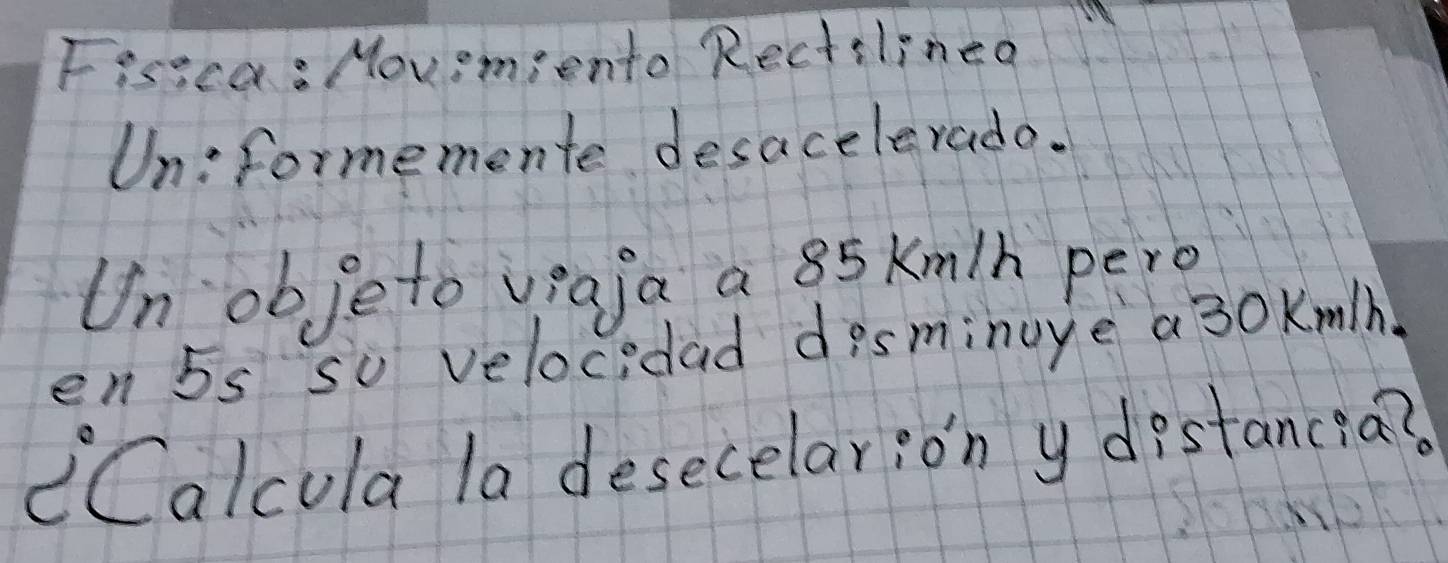 Física: Movimiento Rectilineo
Uniformemente desacelerado.
Un objeto viaja a 85 Km/h pero
en 5s su velocidad disminuye a 30 Km/h.
¿Calcula la desecelarión y distancia?